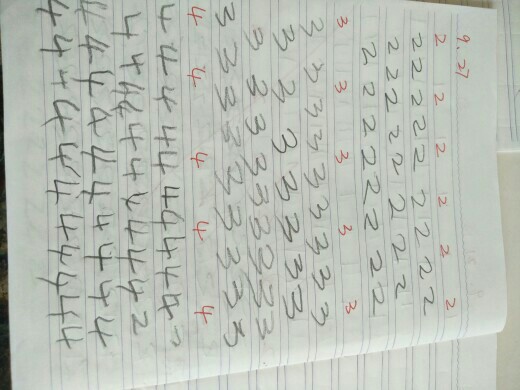 9.21
2 2 2 2 2 2
2 2 2 2 2 2 2 2 2
2 2 2 2 2 2 2 2 2
2 2 2 2 2 2 2 2 2
3 3 3 3 3
3 3 3 3 3 3 3 3 3
3 3 3 3 3 3 3 3
3 3 3 3 3 3 3 3 3
3 3 3 3 3 3 3 3 3 5
4 4 4 4 4
4 4 4 4 4 4 4 4 4 4
4 4 4 4 4 4 4 4 4 2
4 4 4 4 4 4 4 4 4 4
4 4 4 4 4 4 4 4 4 4 4